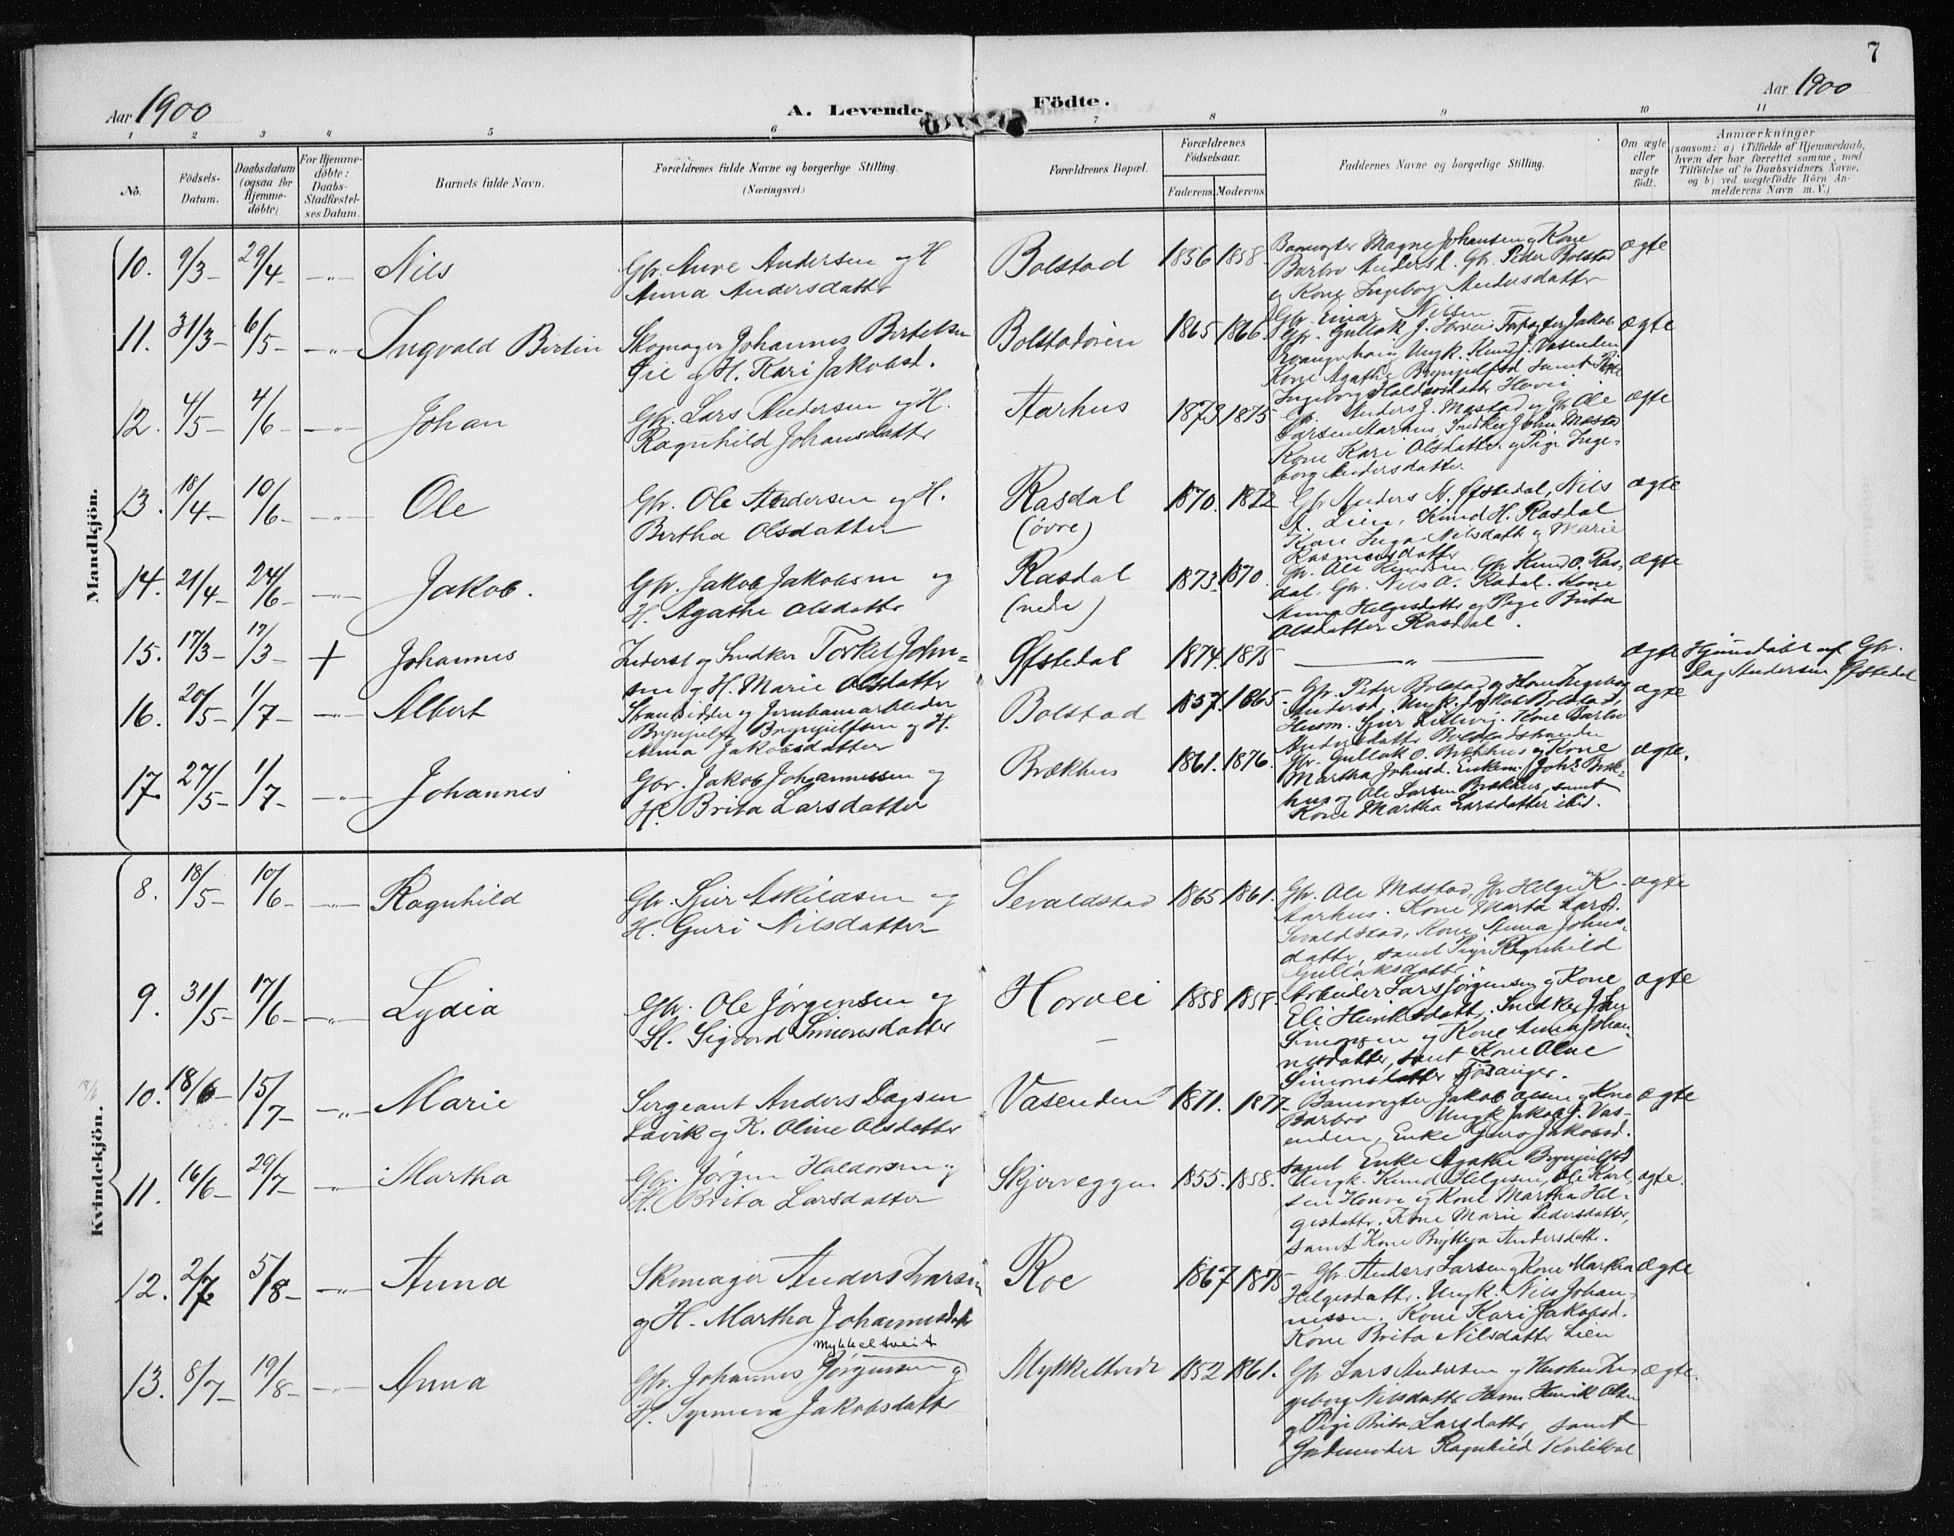 7
Aar 1900
A. Levende Födte.
Aar 1900
1 2 3 4 5 6 7 8 9 10 11
No.
Födsels-Datum.
Daabsdatum (ogsaa for Hjemme-döbte)
For Hjemme-döbte: Daabs-Stadfæstel-ses Datum.
Barnets fulde Navn.
Forældrenes fulde Navne og borgerlige Stilling.
(Næringsvei.)
Forældrenes Bopæl.
Forældrenes Födselsaar.
Faderens. Moderens.
Faddernes Navne og borgerlige Stilling.
Om ægte eller uægte födt.
Anmærkninger
(saasom: a) i Tilfælde af Hjemmedaab, hvem der har forrettet samme, med Tilföielse af to Daabsvidners Navne, og b) ved uægtefödte Börn Anmelderens Navn m. V.)
Mandkjön.
10. 9/3 29/4 Nils
Gbr. Anve Andersen og H
Anna Andersdatter
Bolstad 1856 1858
Banevogter Magne Johansen og Kone
Barbro Andersd. Gbr. Peder Bolstad
og Kone Ingeborg Andersdatter
Gbr. Einar Nilsen
ægte
11. 31/3 6/5 Ingvald Bertin
Skomager Johannes Bertelsen
og H. Kari Jakobsd.
Bolstadøren 1865 1866
Gbr. Gullak J. Horvei Jakob
Evangerhaug Ungk. Knud J. Vasenden
Kone Agathe Brynjulfsd samt Pige
Ingeborg Haldorsdatter Horvei
ægte
12. 4/5 4/6 Johan
Gbr. Lars Andersen og H.
Ragnhild Johansdatter
Aarhus 1873 1875
Gbr. Anders J. Mastad og Gbr Ole
Larsen Aarhus, Snedker John Mastad
Kone Kari Olsdatter og Pige Inge-
borg Andersdatter
ægte
13. 18/4 10/6 Ole
Gbr. Ole Andersen og H.
Bertha Olsdatter
Rasdal
(øvre) 1870. 1872
Gbr Anders N. Øfstedal, Nils
A. Lien, Knud H. Rasdal
Kone Inga Nilsdatter og Marie
Rasmusdatter
ægte
14. 21/4 24/6 Jakob.
Gbr. Jakob Jakobsen og
H. Agathe Olsdatter
Rasdal
(nedre) 1873. 1870.
Gbr. Ole Knudsen, Gbr Knud O. Ras-
dal, Gbr. Nils O. Rasdal. Kone
Anna Helgesdatter og Pige Brita
Olsdatter Rasdal.
ægte
15. 17/3 17/3 + Johannes
Inderst og Snedker Torkel John-
sen og H. Marie Olsdatter
Øfstedal 1874. 1875
ægte
Hjemmedøbt af Gbr.
Dag Andersen Øfstedal
16. 20/5 1/7 Albert
Strandsidder og Jernbanearbeider
Brynjulf Brynjulfsen og H.
Anna Jakobsdatter
Bolstad 1857. 1865
Gbr. Peder Bolstad og Kone Ingeborg
Andersd. Ungk. Jakob Bolstad,
Husm. Sjur Lillevig. Kone Barbro
Andersdatter Bolstadstranden
ægte
17. 27/5 1/7 Johannes
Gbr. Jakob Johannessen og
H. Brita Larsdatter
Brækhus 1861. 1876.
Gbr. Gullak O. Brækhus og Kone
Martha Johnsd. Enkem. Johs. Bræk-
hus og Ole Larsen Brækhus, samt
Kone Martha Larsdatter ibid.
ægte.
Kvindekjön.
8. 18/5 10/6 Ragnhild
Gbr. Sjur Askildsen og
H. Guri Nilsdatter
Sevaldstad 1865 1861.
Gbr. Ole Mastad, Gbr Helge K
Aarhus. Kone Marta Larsd.
Sevaldstad, Kone Anna Johns-
datter, samt Pige Ragnhild
Gullaksdatter
ægte
9. 31/5 17/6 Lydia
Gbr. Ole Jørgensen og
H. Sigvord Simonsdatter
Horvei 1858 1858.
Arbeider Lars Jørgensen og Kone
Eli Henriksdatter, Snedker John
Simonsen og Kone Anna Johan-
nesdatter, samt Kone Oline
Simonsdatter Fjøsanger.
ægte
18/6
10. 18/6 15/7 Marie
Sergeant Anders Dagsen
Lavik og K. Oline Olsdatter
Vasenden 1871. 1877
Banevogter Jakob Olsen og Kone
Barbro Ungk Jakob J. Vas-
enden, Enke Guro Jakobsd.
samt Enke Agathe Brynjulfsd
ægte
11. 16/6 29/7 Martha
Gbr. Jørgen Haldorsen og
H. Brita Larsdatter
Skjerveggen 1855. 1858.
Ungk. Knud Helgesen, Ole Karl-
sen Horve og Kone Martha Hel-
gesdatter. Kone Marie Pedersdatter,
samt Kone Brytteva Andersdatter.
ægte.
12. 2/7 5/8 Anna
Skomager Anders Larsen
og H. Martha Johannesdatter
Roe 1867 1875
Gbr Anders Larsen og Kone Martha
Helgesdatter. Ungk. Nils Johan-
nessen. Kone Kari Jakobsd.
Kone Brita Nilsdatter Lien
ægte
13. 8/7 19/8 Anna
Mykkeltveit
Gbr. Johannes Jørgensen og
H. Synneva Jakobsdatter
Mykkeltveit 1852 1861.
Gbr Lars Andersen og Hustru In-
geborg Nilsdatter, Husm Henrik Olsen
og Pige Brita Larsdatter, samt
Jordemoder Ragnhild
ægte.